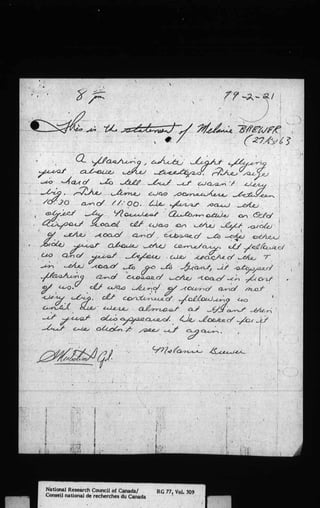 8 pm
79-2-21
This is the statement of Melanie BREWER
(27 63
A flashing, white light flying
just above the treetops. The size
is hard to tell but it wasn't very
big. The time was somewhere between
10:30 and 11:00. We first saw the
object by Nouwest Automotive on Old
Airport Road. It was on the left side
of the road and crossed to the other
side just above the cemetary. It followed
us and just before we reached the T
in the road to go to Grant, it stopped
flashing and crossed the road in front
of us. It was kind of round and not
very big. It continued following us
until we were almost at Grant then
it just disappeared. We looked for it
but we didn't see it again.
Melanie Brewer
Cpl.
National Research Council of Canada/
Conseil national de recherches du Canada
RG 77, Vol. 309